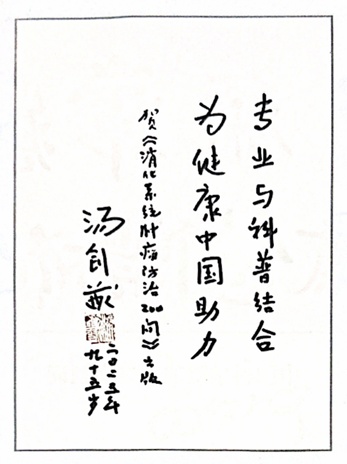 专业与科普结合
为健康中国助力
贺《消化系统肿瘤防治200问》出版
汤钊猷
二〇二五年
九十五岁